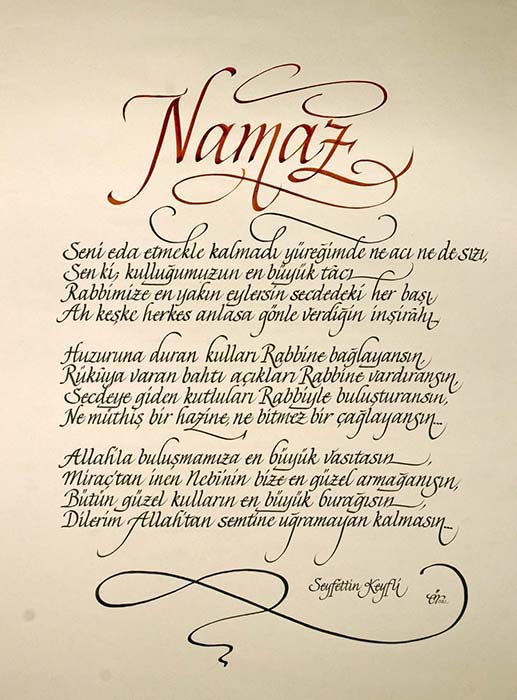 Namaz
Seni eda etmekle kalmadı yüreğimde ne acı ne de sızı,
Sen ki, kulluğumuzun en büyük tâcı
Rabbimize en yakın eylersin secdedeki her başı
Ah keşke herkes anlasa gönle verdiğin inşirâhı,
Huzuruna duran kulları Rabbine bağlayansın,
Rükûya varan bahtı açıkları Rabbine vardıransın,
Secdeye giden kutluları Rabbiyle buluşturansın,
Ne müthiş bir hazine, ne bitmez bir çağlayansın...
Allah'la buluşmamıza en büyük vasıtasın,
Miraç'tan inen Nebî'nin bize en güzel armağanısın,
Bütün güzel kulların en büyük burağısın,
Dilerim Allah'tan semtine uğramayan kalmasın...
Seyfettin Keyfli